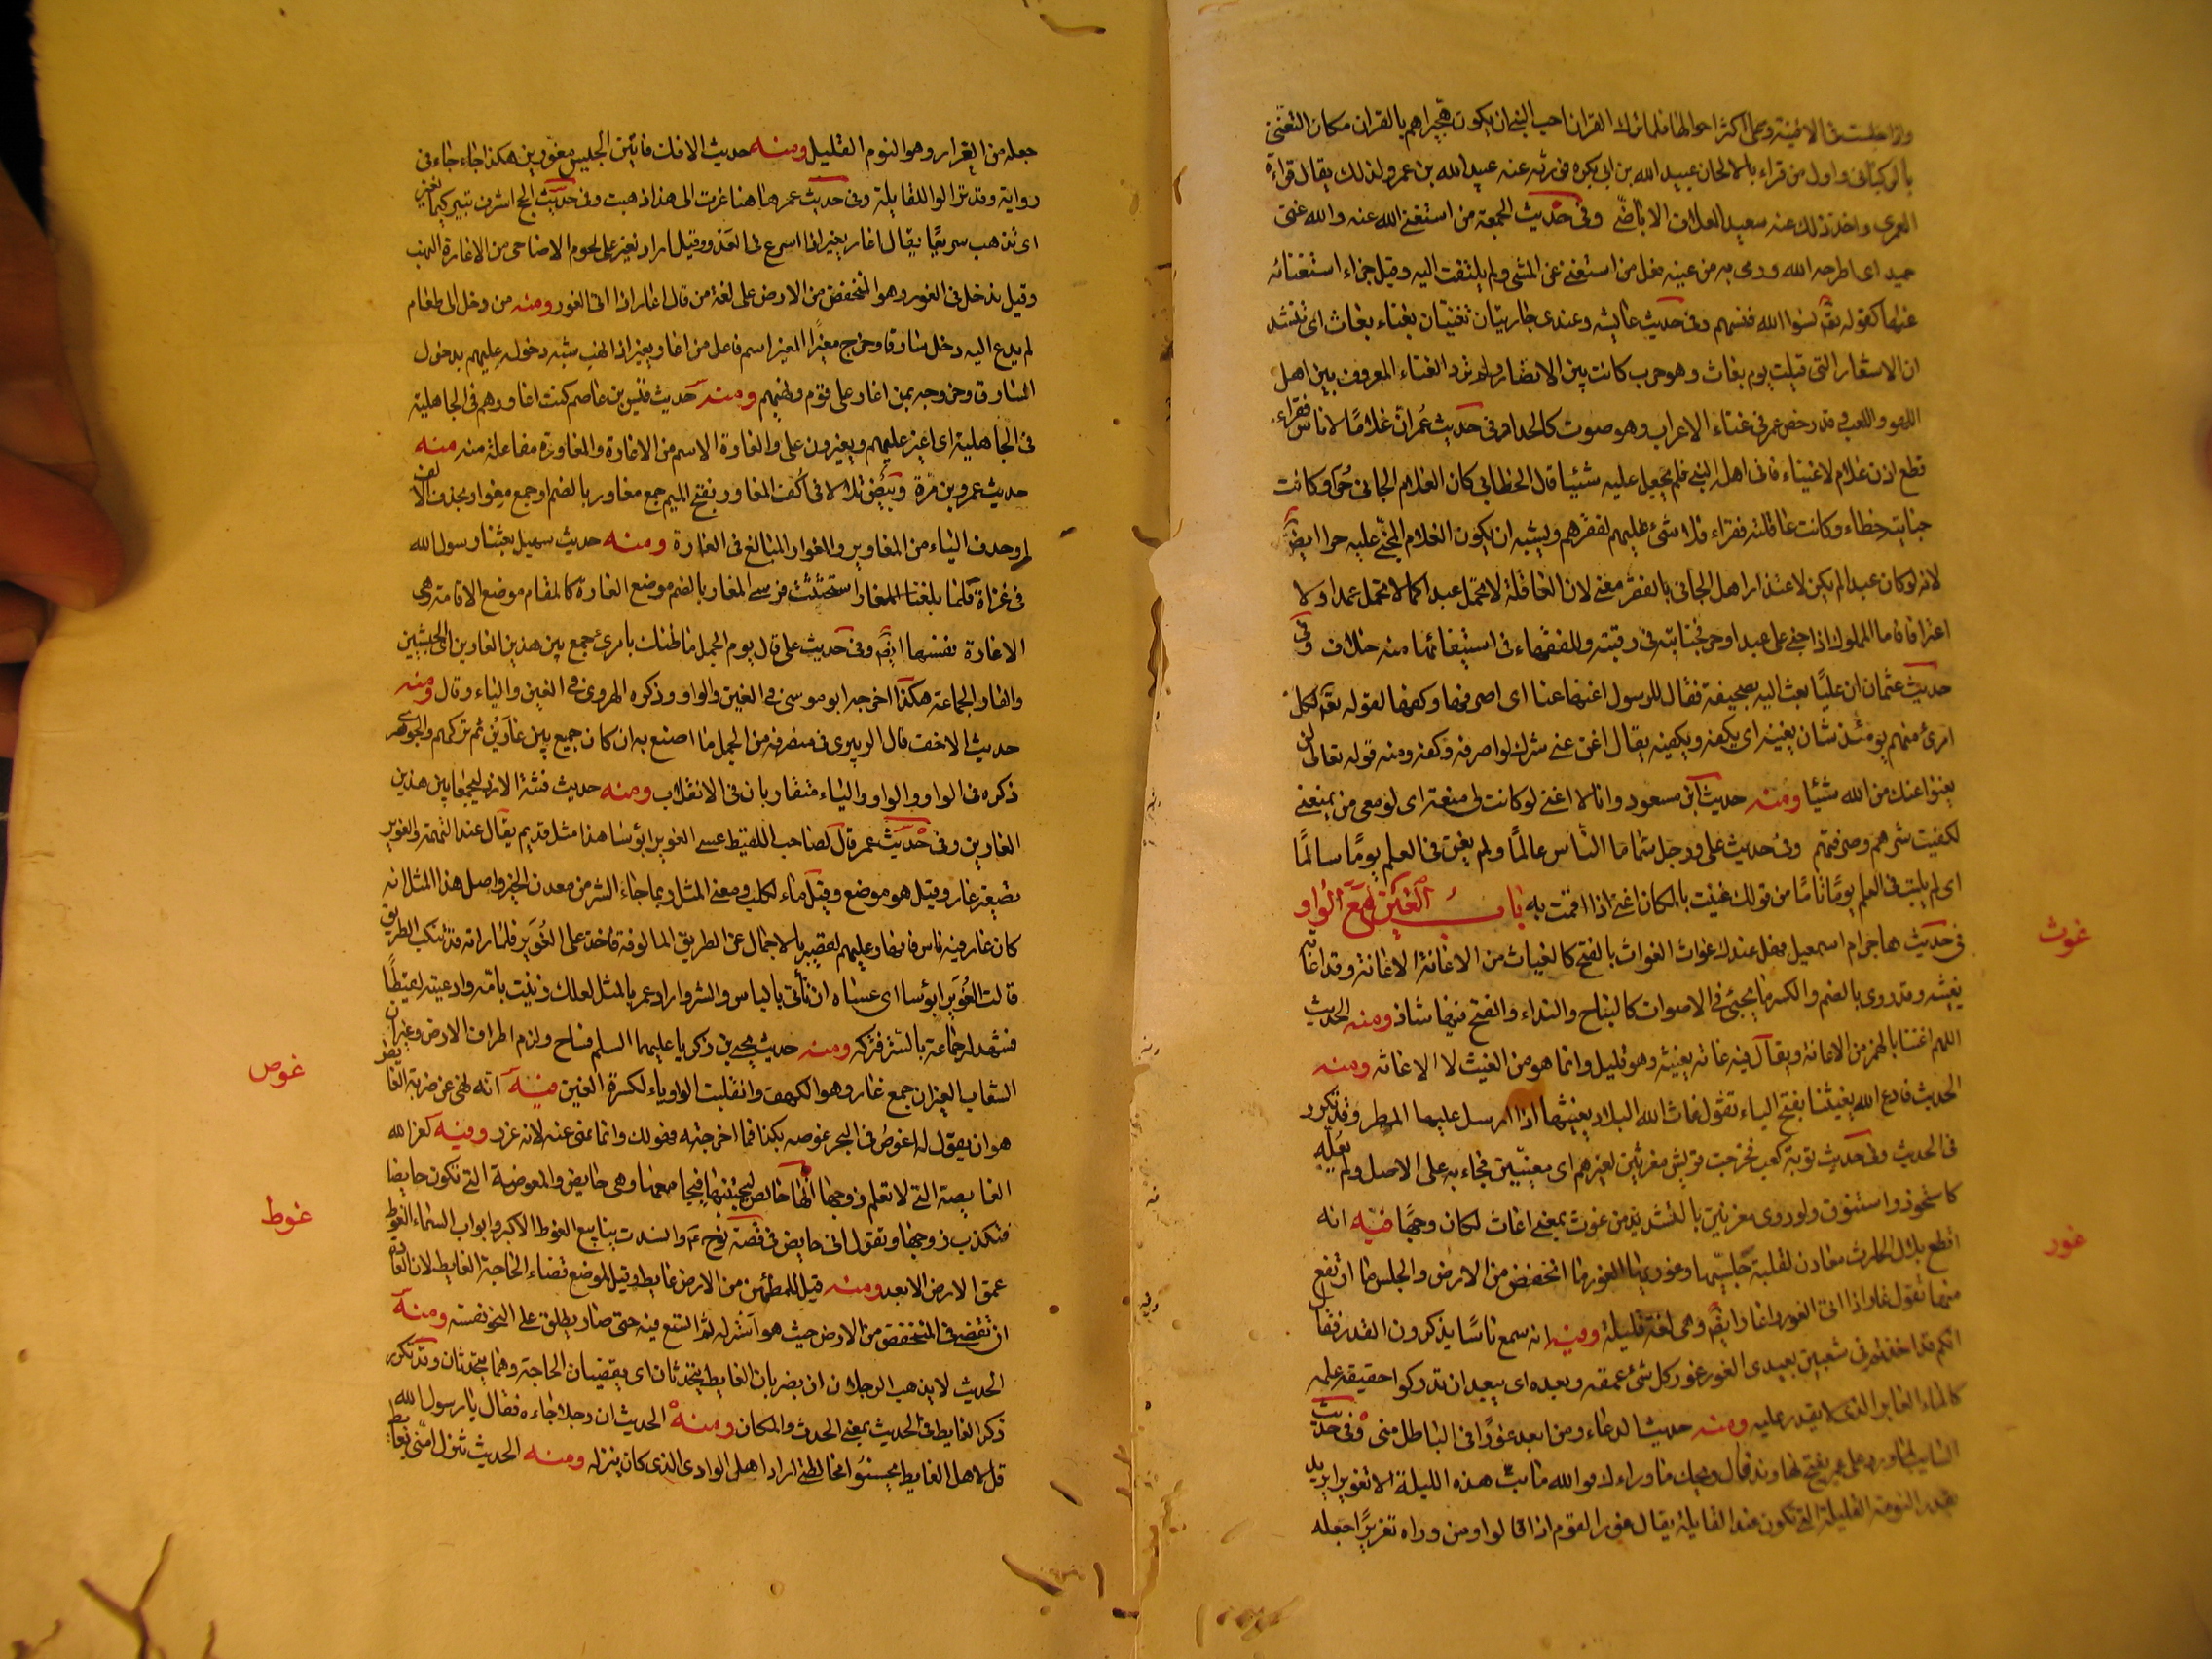 واذا جلست فى الافنية وعلى اكثر احوالها فلما نزل القران احب النبى ان يكون هجيراهم بالقران مكان التغنى
بالركبانى واول من قراء بالالحان عبيد الله بن ابى بكره فورثه عنه عبيد الله بن عمر ولذلك يقال قراءة
العمرى واخذ ذلك عنه سعيد العلاف الاباضى وفى حديث الجمعة من استغنى الله عنه والله غنى
حميد اى اطرحه الله ورمى به من عينه فعل من استغنى عن الشى ولم يلتفت اليه وقيل جزاء استغنائه
عنها كقوله تع نسوا الله فنسيهم وفى حديث عايشه وعندى جاريتان تغنيان بغناء بغاث اى تنشد
ان الاشعار التى قيلت يوم بغاث وهو حرب كانت بين الانصار ولم ترد الغناء المعروف بين اهل
اللهو واللعب وقد رخص عمر فى غناء الاعراب وهو صوت كالحداء وفى حديث عمر ان غلاما لاناس فقراء
قطع اذن غلام لاغنياء فاتى اهله النبى فلم يجعل عليه شيئا قال الخطابى كان الغلام الجانى حرا وكانت
جنايته خطاء وكانت عاقلته فقراء فلا شئ عليهم لفقرهم ويشبه ان يكون الغلام المجنى عليه حرا ايض
لانه لو كان عبدا لم يكن لاعتذار اهل الجانى بالفقر معنى لان العاقلة لا تحمل عبدا كما لا تحمل عمدا ولا
اعترافا فاما المملوك اذا جنى على عبد او حر فجنايته فى رقبته وللفقهاء فى استيفائها منه خلاف وفى
حديث عثمان ان عليا بعث اليه بصحيفة فقال للرسول اغنها عنا اى اصرفها وكفها لقوله تع لكل
امرئ منهم يومئذ شان يغنيه اى يكفه ويكفيه يقال اغن عنى شرك اى اصرفه وكفه ومنه قوله تعالى لن
يغنوا عنك من الله شيئا ومنه حديث ابن مسعود وانا لا اغنى لو كانت لى منعة اى لو معى من يمنعنى
لكفيت شرهم وصرفتهم وفى حديث على ورجل سماه الناس عالما ولم يغن فى العلم يوما سالما
اى لم يلبث فى العلم يوما تاما من قولك غنيت بالمكان اغنى اذا اقمت به باب الغين مع الواو
غوث
فى حديث هاجر ام اسمعيل فهل عندك غواث الغواث بالفتح كالغياث من الاغاثة الاغانة وقد اغاثه
يغيثه وقد روى بالضم والكسر وانما يجئ فى الاصوات كالنباح والنداء والفتح فيها شاذ ومنه الحديث
اللهم اغثنا بالهمز من الاغاثة ويقال فيه غاثه يغيثه وهو قليل وانما هو من الغيث لا الاغاثه ومنه
الحديث فادع الله يغيثنا بفتح الياء تقول غاث الله البلاد يغيثها اذا ارسل عليها المطر وقد تكرر
فى الحديث وفى حديث توبة كعب فخرجت قريش مغوثين لعيرهم اى مغيثين فجاء به على الاصل ولم يعله
كاستحوذ واستنوق ولو روى مغوثين بالتشديد من غوث بمعنى اغاث لكان وجها فيه انه
غور
اقطع بلال بن الحارث معادن القبلية جلسيها وغوريها الغور ما انخفض من الارض والجلس ما ارتفع
منها تقول غار اذا اتى الغور واغار ايض وهى لغة قليلة ومنه انه سمع ناسا يذكرون القدر فقال
انكم قد اخذتم فى شعبين بعيدى الغور غور كل شئ عمقه وبعده اى يبعد ان تدركوا حقيقة علمه
كالماء الغاير الذى لا يقدر عليه ومنه حديث الدعاء ومن ابعد غورا فى الباطل منى وفى حديث
السايب لما ورد على عمر بفتح نهاوند قال ويحك ما وراءك فوالله ما بت هذه الليلة الا تغويرا يريد
بقدر النومة القليلة التى تكون عند القايلة يقال غور القوم اذا قالوا ومن رواه تغريرا جعله
جعله من الغرار وهو النوم القليل ومنه حديث الافك فاتين الجيش مغورين هكذا جاء فى
رواية وقد نزلوا للقايلة وفى حديث عمر هاهنا غرت الى هذا ذهبت وفى حديث الحج اشرق ثبير كيما نغير
اى نذهب سريعا يقال اغار يغير اذا اسرع فى العدو وقيل اراد نغير على لحوم الاضاحى من الاغارة النهب
وقيل ندخل فى الغور وهو المنخفض من الارض على لغة من قال اغار اذا اتى الغور ومنه من دخل الى طعام
لم يدع اليه دخل سارقا وخرج مغيرا المغير اسم فاعل من اغار يغير اذا نهب شبه دخوله عليهم بدخول
السارق وخروجه بمن اغار على قوم ونهبهم ومنه حديث قيس بن عاصم كنت اغاورهم فى الجاهلية
فى الجاهلية اى اغير عليهم ويغيرون على والغارة الاسم من الاغارة والمغاورة مفاعلة منه منه
حديث عمرو بن مرة وبيض تلالا فى اكف المغاور بفتح الميم جمع مغاور بالضم او جمع مغوار بحذف الالف
او حذف الياء من المغاوير والمغوار المبالغ فى الغارة ومنه حديث سهيل بعثنا رسول الله
فى غزاة فلما بلغنا المغار استحثثت فرسى المغار بالضم موضع الغارة كالمقام موضع الاقامة وهى
الاغارة نفسها ايض وفى حديث على قال يوم الجمل ما ظنك بامرئ جمع بين هذين الغارين اى الجيشين
والغار الجماعة هكذا اخرجه ابو موسى فى الغين والواو وذكره الهروى فى الغين والياء وقال ومنه
حديث الاحنف قال الزبير فى منصرفه من الجمل ما اصنع به ان كان جمع بين غارين ثم تركهم والجوهرى
ذكره فى الواو والواو والياء متقاربان فى الانقلاب ومنه حديث فتنة الازد ليجمعا بين هذين
الغارين وفى حديث عمر قال لصاحب اللقيط عسى الغوير ابؤسا هذا مثل قديم يقال عند التهمة والغوير
تصغير غار وقيل هو موضع وقيل ماء لكلب ومعنى المثل ربما جاء الشر من معدن الخير واصل هذا المثل انه
كان غار فيه ناس فانهار عليهم لقصير بالاجمال عن الطريق المالوفة فاخذ على الغوير فلما راته قد تنكب الطريق
قالت الغوير ابؤسا اى عساه ان ياتى بالباس والشر واراد عمر بالمثل لعلك زنيت بامه وادعيته لقيطا
فشهد له جماعة بالستر فتركه ومنه حديث يحيى بن ذكريا عليهما السلم فساح ولزم اطراف الارض وغيران
الشعاب الغيران جمع غار وهو الكهف وانقلبت الواو ياء لكسرة الغين فيه انه نهى عن ضربة الغايص
غوص
هو ان يقول له اغوص فى البحر غوصه بكذا فما اخرجته فهو لك وانما نهى عنه لانه غرر وفيه لعن الله
الغايصة التى لا تعلم زوجها انها حايض ليجتنبها فيجامعها وهى حايض والمغوصة التى تكون حايضا
فتكذب زوجها وتقول انى حايض فى قصة نوح ع م وانسدت ينابيع الغوط الاكبر وابواب السماء الغوط
غوط
عمق الارض الابعد ومنه قيل للمطمئن من الارض غايط وقيل لموضع قضاء الحاجة الغايط لان العادة
ان تقضى فى المنخفض من الارض حيث هو استر له ثم اتسع فيه حتى صار يطلق على النجو نفسه ومنه
الحديث لا يذهب الرجلان يضربان الغايط يتحدثان اى يقضيان الحاجة وهما يتحدثان وقد تكرر
ذكر الغايط فى الحديث بمعنى الحدث والمكان ومنه الحديث ان رجلا جاءه فقال يا رسول الله
قل لاهل الغايط يحسنوا مخالطتى اراد اهل الوادى الذى كان ينزله ومنه الحديث تنزل امتى بغايط